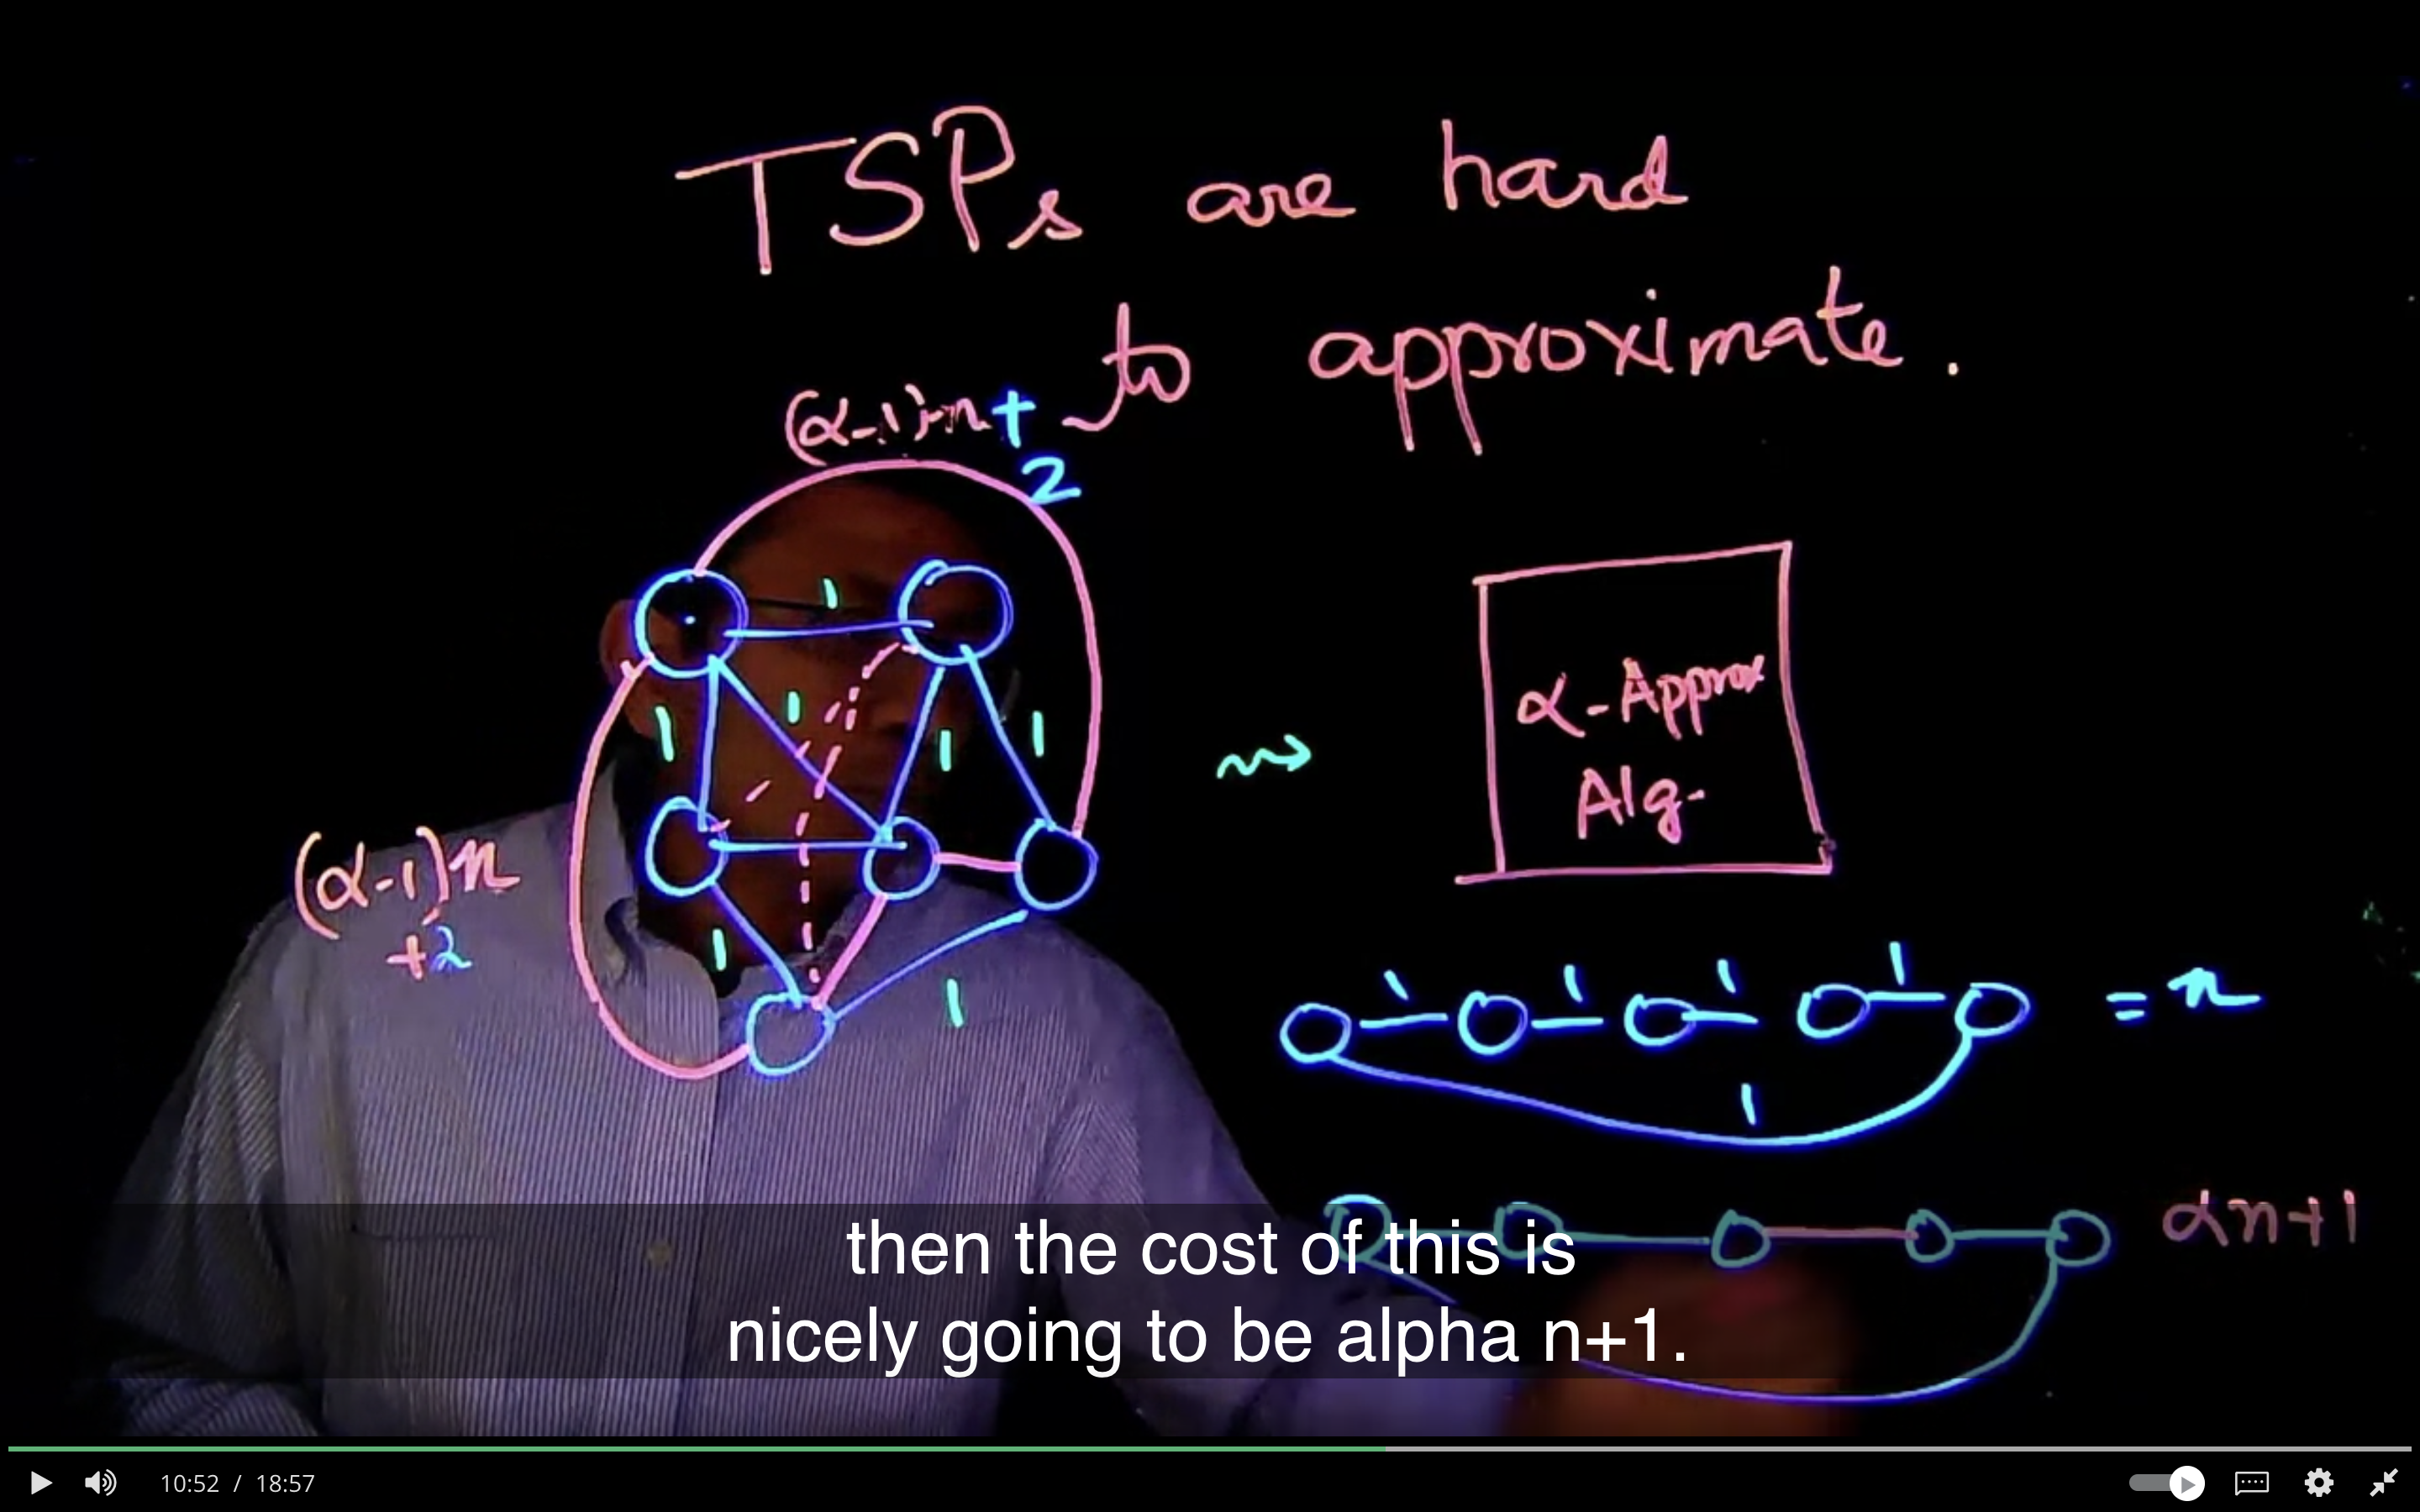 TSPs are hard
to approximate.
(α-1)·n+
2
1
1
1
1
1
(α-1)n
+2
1
1
α-Approx
Alg.
1 1 1 1
= n
1
αn+1
then the cost of this is
nicely going to be alpha n+1.
10:52 / 18:57